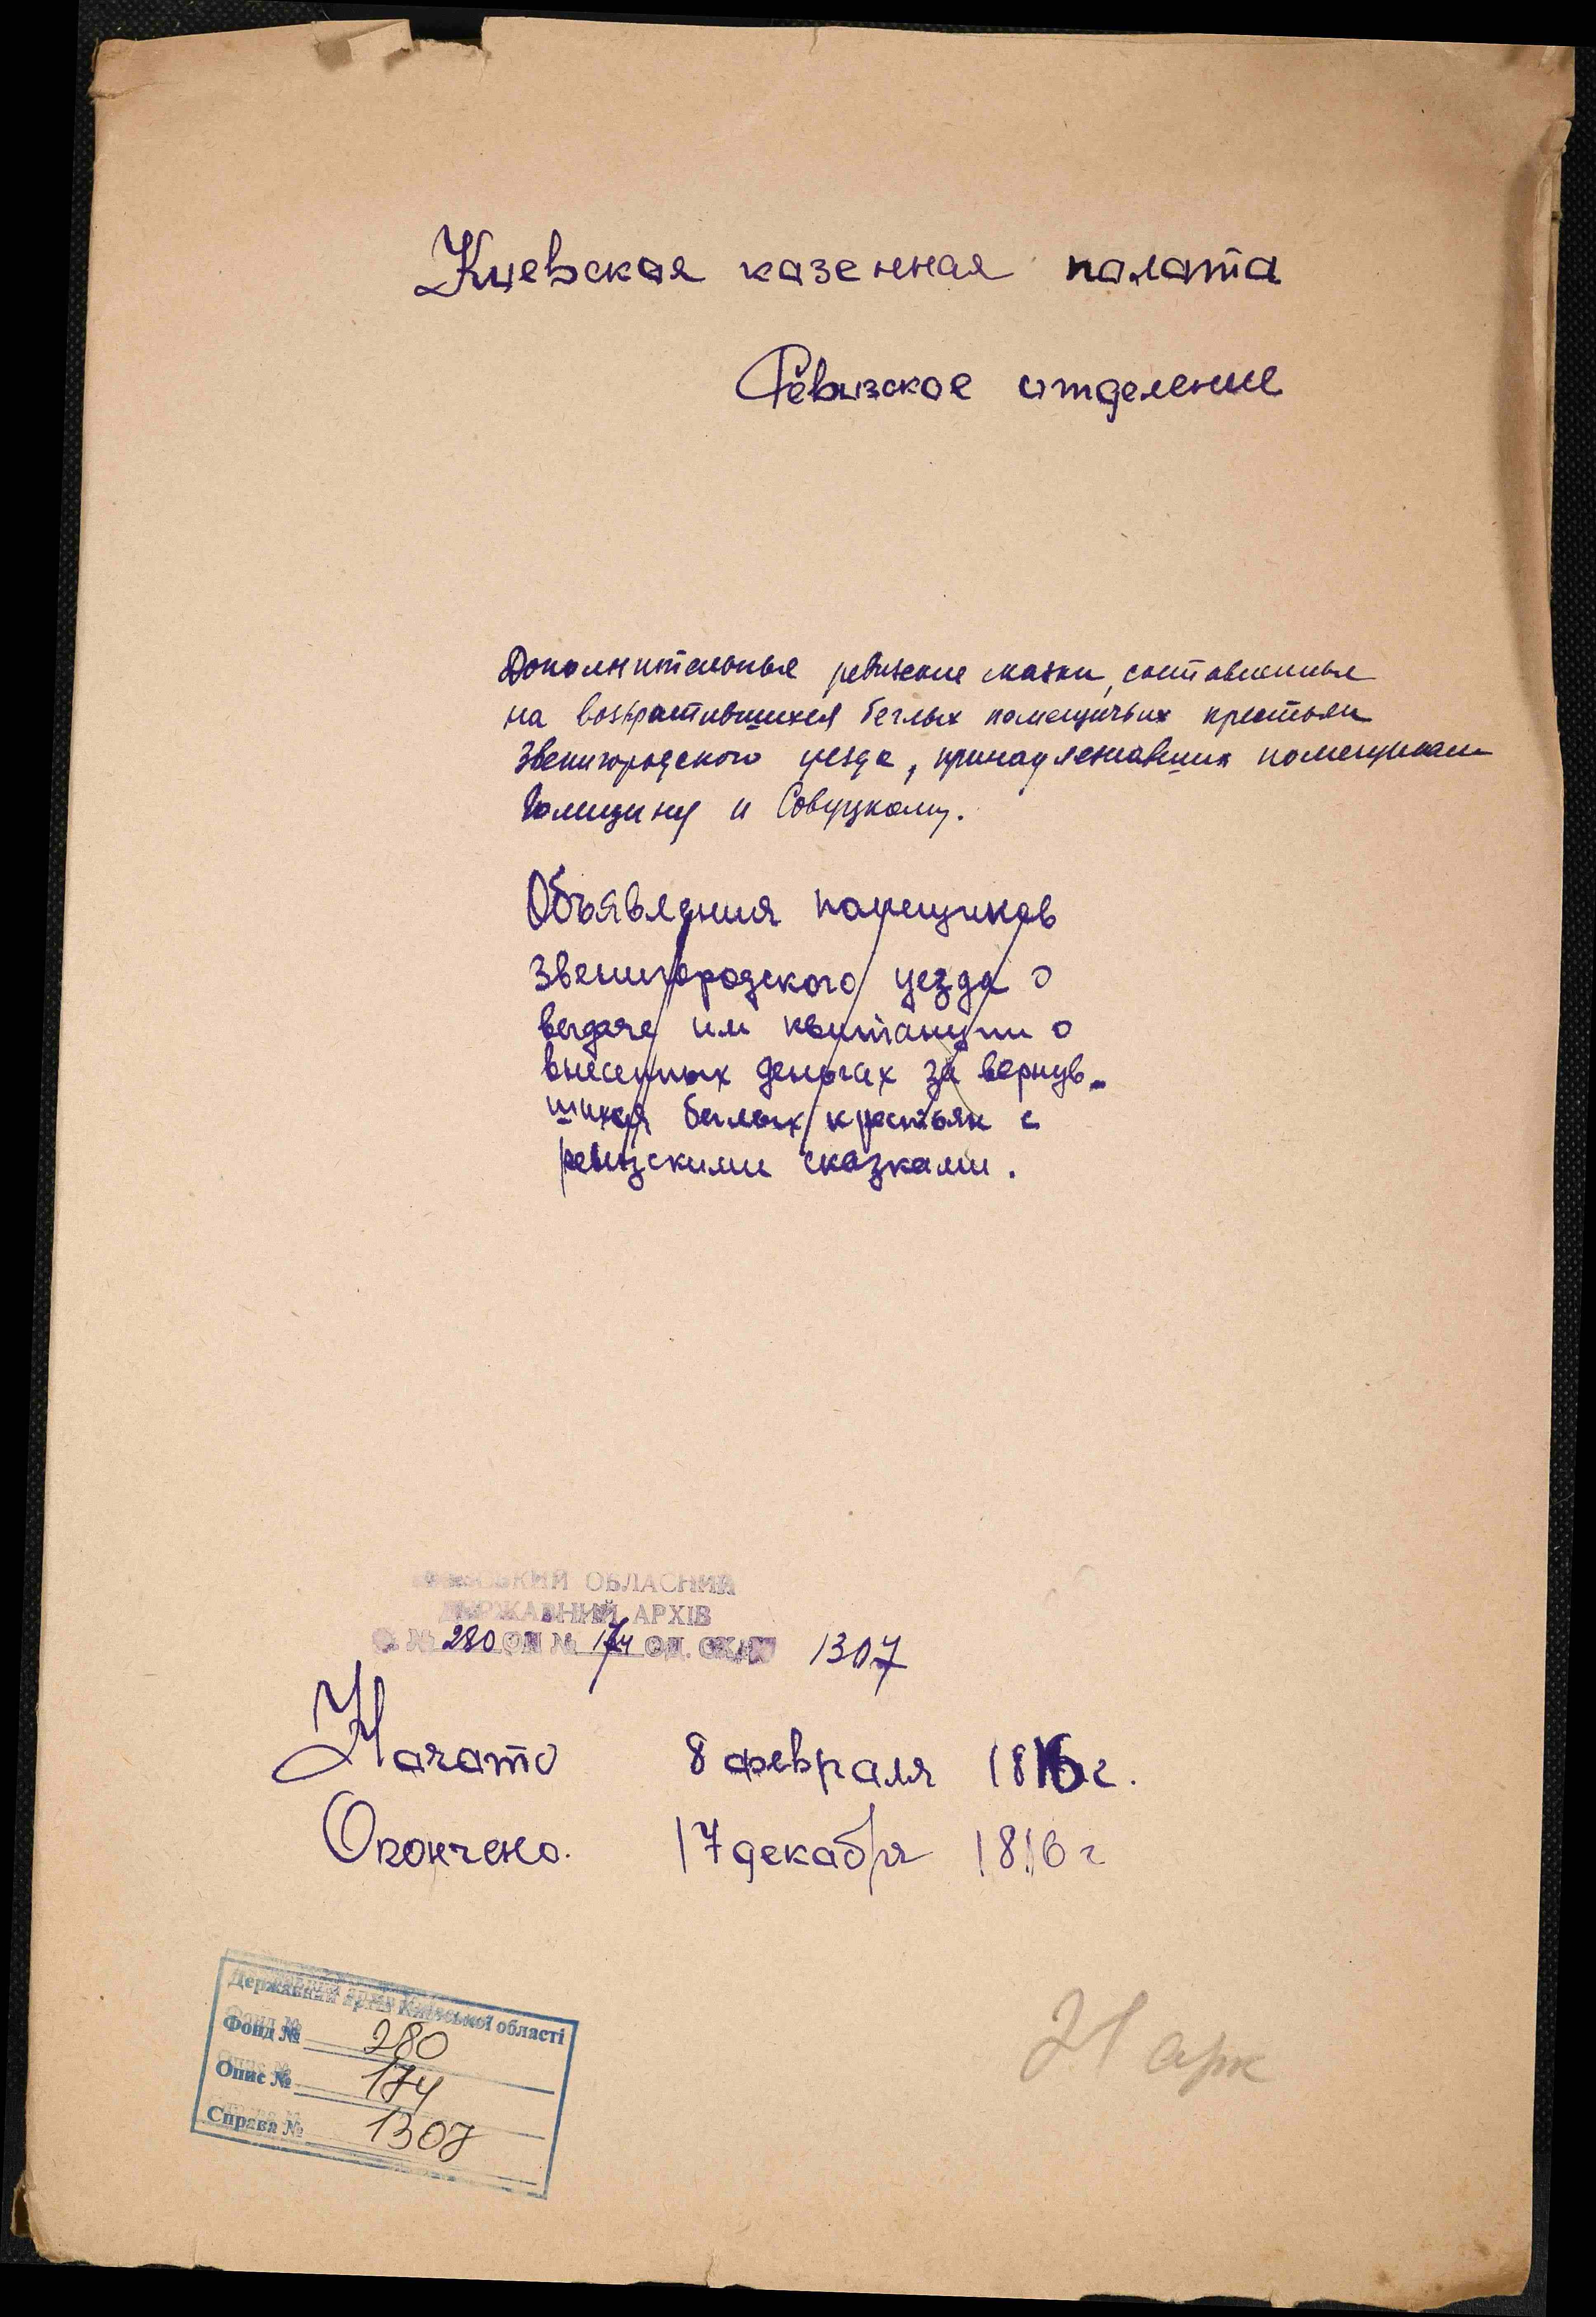 Киевская казенная палата
Ревизское отделение
Дополнительные ревизские сказки, составленные
на возвратившихся беглых помещичьих крестьян
Звенигородского уезда, принадлежавших помещикам
Голицину и Совуцкому.
Объявления помещиков
Звенигородского уезда о
выдаче им квитанции о
внесенных деньгах за вернув-
шихся беглых крестьян с
ревизскими сказками.
ОБЛАСНИЙ
ДЕРЖАВНИЙ АРХІВ
Ф. № 280 ОП № 174 ОД. 1307
Начато 8 февраля 1816 г.
Окончено. 17 декабря 1816 г
Державний архів Київської області
Фонд № 280
Опис № 174
Справа № 1307
21 арк